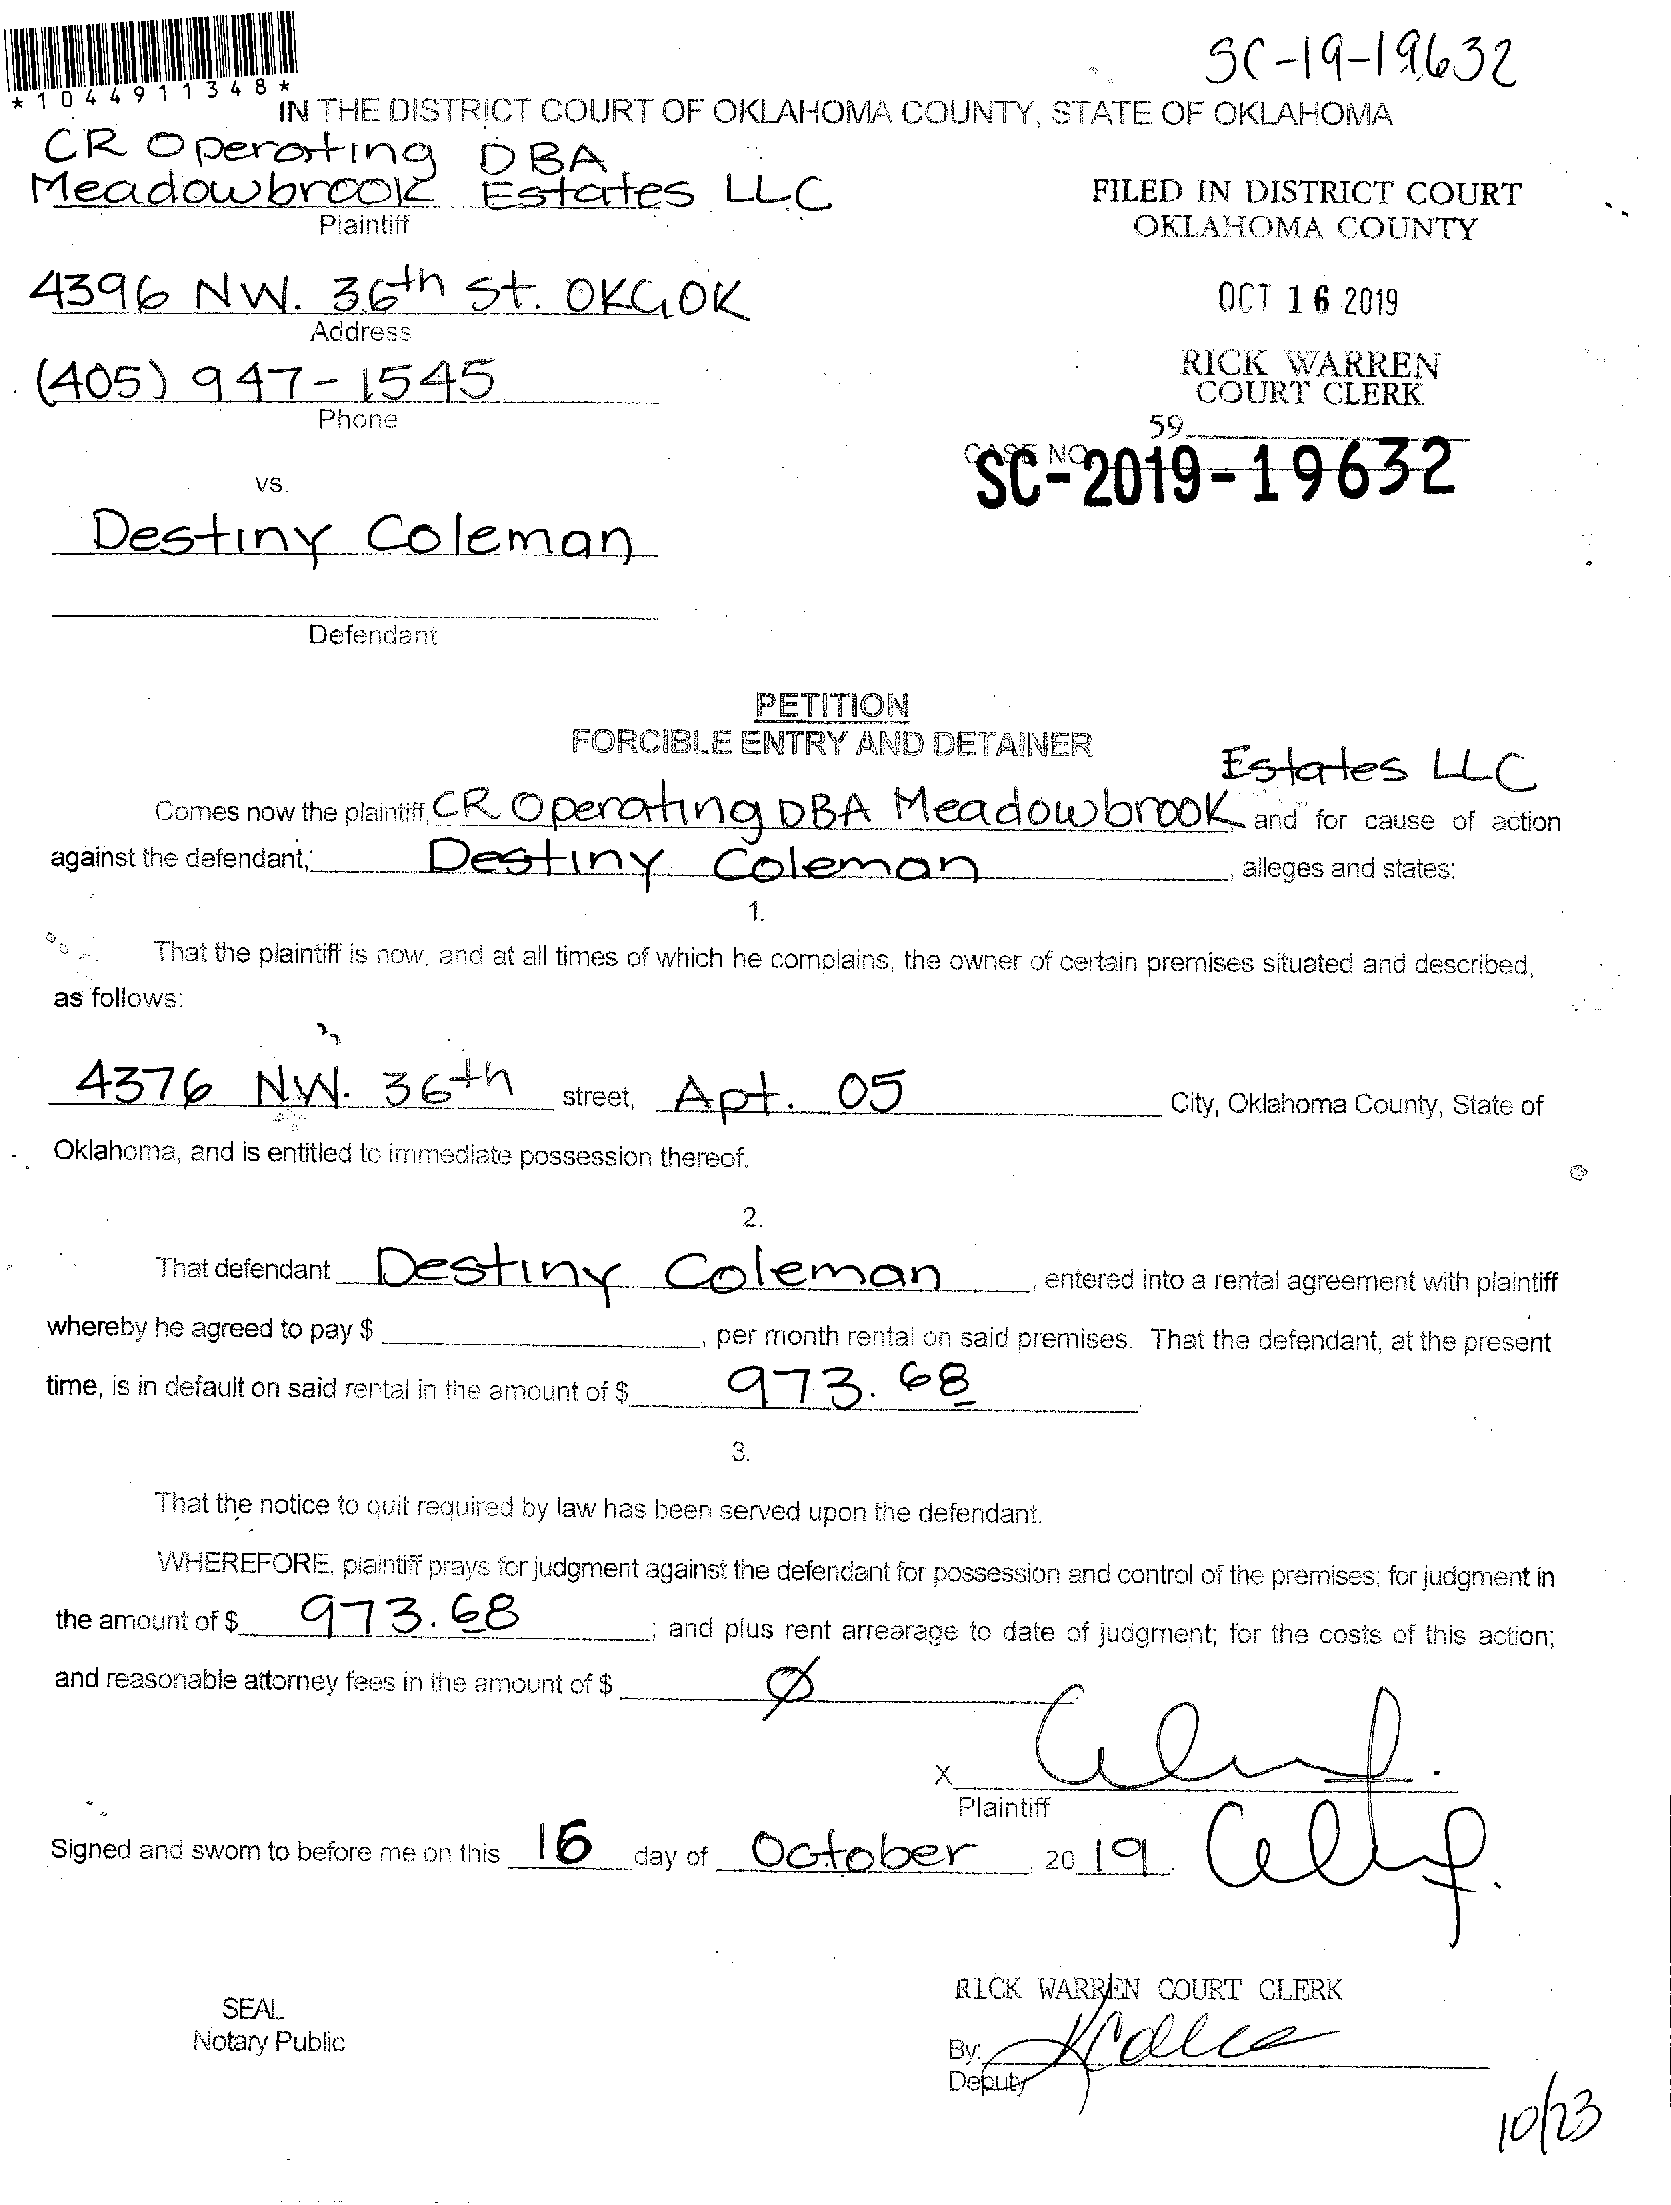 SC-19-19632
*1044911348*
IN THE DISTRICT COURT OF OKLAHOMA COUNTY, STATE OF OKLAHOMA
CR Operating DBA
Meadowbrook Estates LLC
Plaintiff
FILED IN DISTRICT COURT
OKLAHOMA COUNTY
4396 NW. 36th St. OKC, OK
Address
OCT 16 2019
(405) 947-1545
Phone
RICK WARREN
COURT CLERK
59
CASE NO.
SC-2019-19632
vs.
Destiny Coleman
Defendant
PETITION
FORCIBLE ENTRY AND DETAINER
Estates LLC
Comes now the plaintiff, CR Operating DBA Meadowbrook and for cause of action
against the defendant, Destiny Coleman, alleges and states:
1.
That the plaintiff is now, and at all times of which he complains, the owner of certain premises situated and described,
as follows:
4376 NW. 36th street, Apt. 05 City, Oklahoma County, State of
Oklahoma, and is entitled to immediate possession thereof.
2.
That defendant Destiny Coleman, entered into a rental agreement with plaintiff
whereby he agreed to pay $ , per month rental on said premises. That the defendant, at the present
time, is in default on said rental in the amount of $ 973.68
3.
That the notice to quit required by law has been served upon the defendant.
WHEREFORE, plaintiff prays for judgment against the defendant for possession and control of the premises; for judgment in
the amount of $ 973.68; and plus rent arrearage to date of judgment; for the costs of this action;
and reasonable attorney fees in the amount of $ Ø
X
Plaintiff
Signed and sworn to before me on this 16 day of October 2019.
RICK WARREN COURT CLERK
SEAL
Notary Public
By:
Deputy
10/23